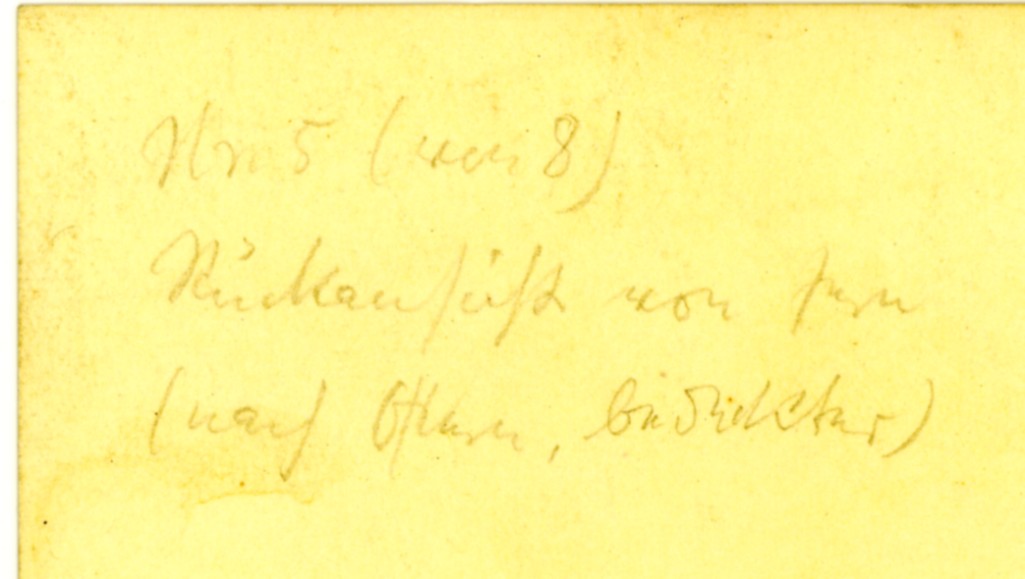 Nr. 5 (von 8)
Rückansicht von fern
(nach Osten,